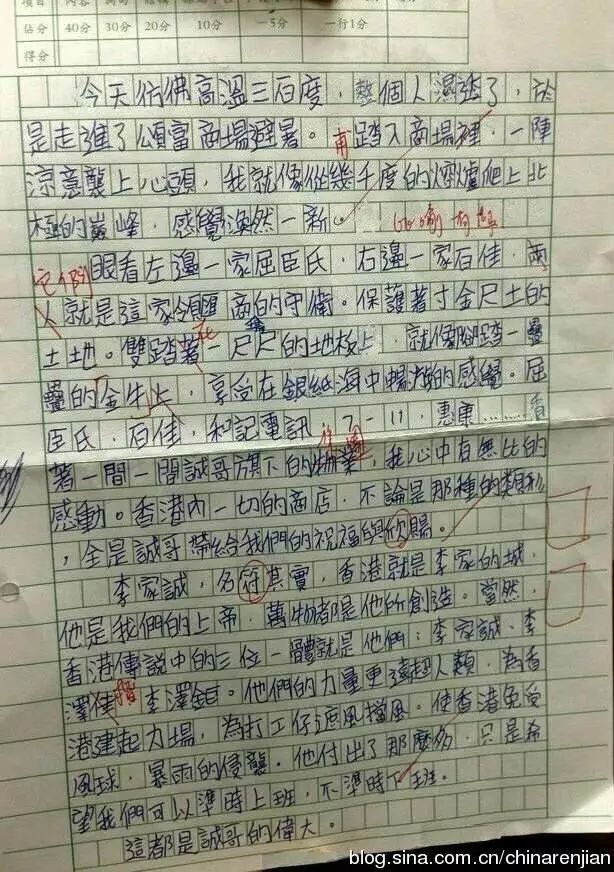 佔分 40分 30分 20分 10分 —5分 一行1分
得分
今天彷佛高溫三百度，整個人濕透了，於
是走進了頌富商場避暑。甫踏入商場裡，一陣
涼意襲上心頭，我就像從幾千度的燶爐爬上北
極的巔峰，感覺渙然一新。
比喻
它們
眼看左邊一家屈臣氏，右邊一家百佳，兩
人就是這家領匯商的守衛。保護著寸金尺土的
土地。雙踏著一尺尺的地板上，就像腳踏一疊
在
疊的金牛上，享受在銀紙海中暢游的感覺。屈
臣氏，百佳，和記電訊，7-11，惠康……看
集團
著一間一間誠哥旗下的物業，我心中有無比的
感動。香港內一切的商店，不論是那種的類形
，全是誠哥帶給我們的祝福與欣賜。
李家誠，名符其實，香港就是李家的城，
他是我們的上帝，萬物都是他所創造。當然，
香港傳說中的三位一體就是他們：李家誠、李
澤佳 楷 李澤鉅。他們的力量更遠超人類，為香
港建起力場，為打工仔遮風擋風。使香港免受
風球，暴雨的侵襲。他付出了那麼多，只是希
望我們可以準時上班，不準時下班。
這都是誠哥的偉大。
blog.sina.com.cn/chinarenjian